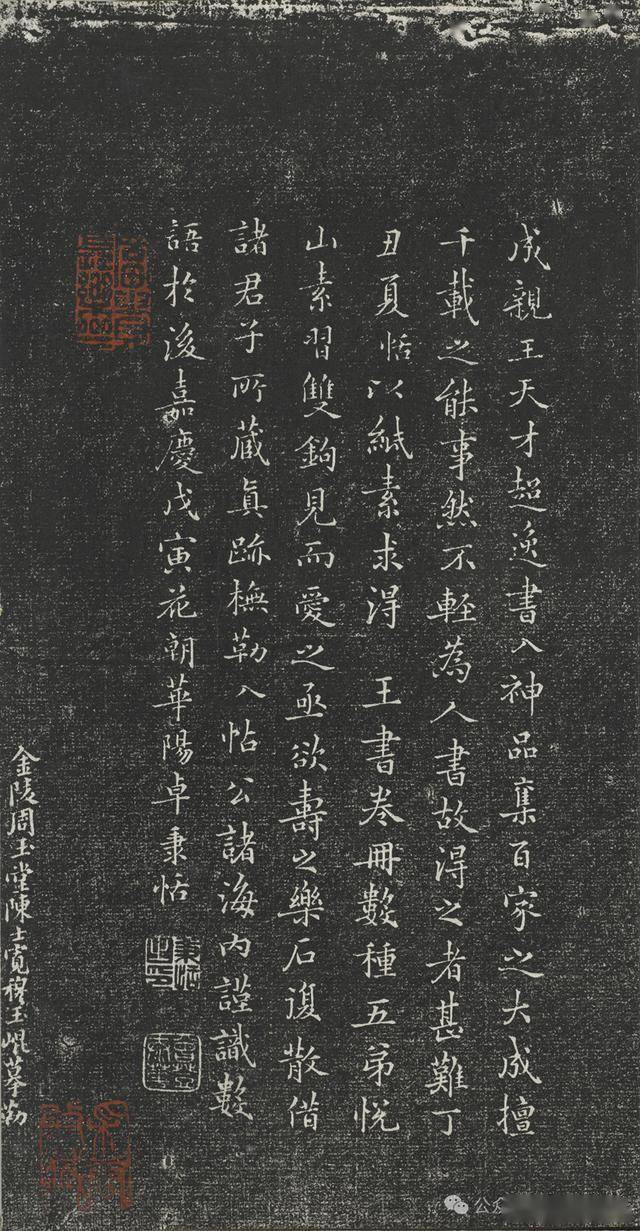 成親王天才超逸書入神品集百家之大成擅
千載之能事然不輕為人書故得之者甚難丁
丑夏恬以紙素求得　王書卷冊數種五弟悦
山素習雙鉤見而愛之亟欲壽之樂石復散借
諸君子所藏真跡橅勒入帖公諸海內謹識數
語於後嘉慶戊寅花朝華陽卓秉恬
金陵周玉堂陳士寬穆玉崐摹勒